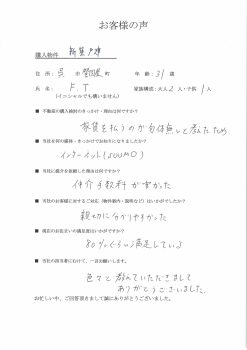 お客様の声
購入物件 新築戸建
住所: 呉 市 警固屋 町 年齢: 31 歳
氏名: F.T 家族構成: 大人 2 人・子供 1 人
(イニシャルでも構いません)
■ 不動産の購入検討のきっかけ・理由は何ですか?
家賃を払うのが勿体無いと考えたため
■ 当社を何の媒体・きっかけでお知りになりましたか?
インターネット(SUUMO)
■ 当社に媒介を依頼した理由は何ですか?
仲介手数料が安かった
■ 当社のお客様に対するご対応(物件案内・説明など)はいかがでしたか?
親切に分かりやすかった
■ 現在のお住まいの満足度はいかがですか?
80%くらい満足している
■ 当社の担当者にむけて、一言お願いします。
色々と教えていただきまして
ありがとうございました。
お忙しい中、ご回答頂きまして誠にありがとうございました。